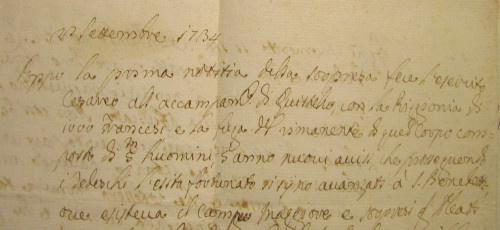 Settembre 1734
Doppo la prima notitia della sorpresa fece l'esercito
Cesareo all'accampam.to di Quistello, con la Prigionia di
Francesi e la fuga del rimanente di quel Corpo com-
posto di huomini, S'anno nuovi avisi, che inseguendo
i Tedeschi l'esito fortunato si sono avanzati à S. Benedetto
ove esisteva il campo Maggiore e sorpresi